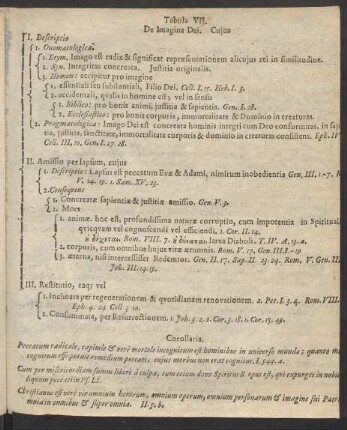 Tabula VII.
De Imagine Dei. Cujus
I. Descriptio
1. Onomatologica.
1. Etym. Imago est radix & significat repræsentationem alicujus rei in similitudine.
2. Syn. Integritas concreata. Justitia originalis.
3. Homon: accipitur pro imagine
1. essentiali seu substantiali, Filio Dei. Coll. I. 15. Heb. I. 3.
2. accidentali, qualis in homine est; vel in sensu
1. Biblico: pro bonis animi, justitia & sapientia. Gen. I. 28.
2. Ecclesiastico: pro bonis corporis, immortalitate & Dominio in creaturas.
2. Pragmatologica: Imago Dei est concreata hominis integri cum Deo conformitas, in sapien-
tia, justitia, sanctitate, immortalitate corporis & dominio in creaturas consistens. Eph. IV
Coll. III, 10. Gen. I. 27. 28.
II. Amissio per lapsum, cujus
1. Descriptio: Lapsus est peccatum Evæ & Adami, nimirum inobedientia Gen. III, 1.-7. R
V. 14. 19. 1. Sam. XV, 23.
2. Consequens
1. Concreatæ sapientiæ & justitiæ amissio. Gen. V. 3.
2. Mors
1. animæ, hoc est, profundissima naturæ corruptio, cum impotentia in Spiritual
quicquam vel cognoscendi vel efficiendi, 1. Cor. II. 14.
Rom. VIII. 7. larva Diaboli.
2. corporis, cum omnibus hujus vitæ ærumnis. Rom. V. 17, Gen. III. 8.-19
3. æterna, nisi intercessisset Redemtor. Gen. II. 17. Sap. II. 23. 24. Rom, V. Gen. III
Joh. III. 14. 15.
III. Restitutio, eaq; vel
1. Inchoata per regenerationem & quotidianam renovationem. 2. Pet. I. 3. 4. Rom. VIII.
Eph. 4. 24 Coll 3. 10.
2. Consummata, per Resurrectionem. 1. Joh. 3: 2. 2. Cor. 3. 18. 1. Cor. 15. 49.
Corollaria.
Peccatum radicale, capitale & verè mortale incognitum est hominibus in universo mundo; quanto m
cognitum esse potuit remedium peccati, cujus morbus non notus agnitus. I. 344. a.
Cum per misericordiam sumus liberi à culpa, tum etiam dono Spiritus S. opus est, qui expurget in nobis
liquum peccati in Ps. LI.
Christianus est verè vir omnium horarum, omnium operum, omnium personarum & imagine sui Patris
omnia in omnibus & super omnia. II. 5. b.